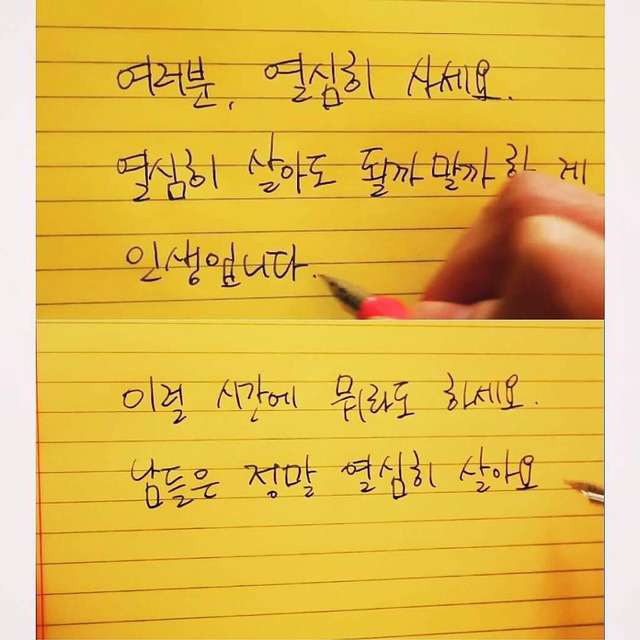 여러분, 열심히 사세요.
열심히 살아도 될까말까한 게
인생입니다.
이럴 시간에 뭐라도 하세요.
남들은 정말 열심히 살아요